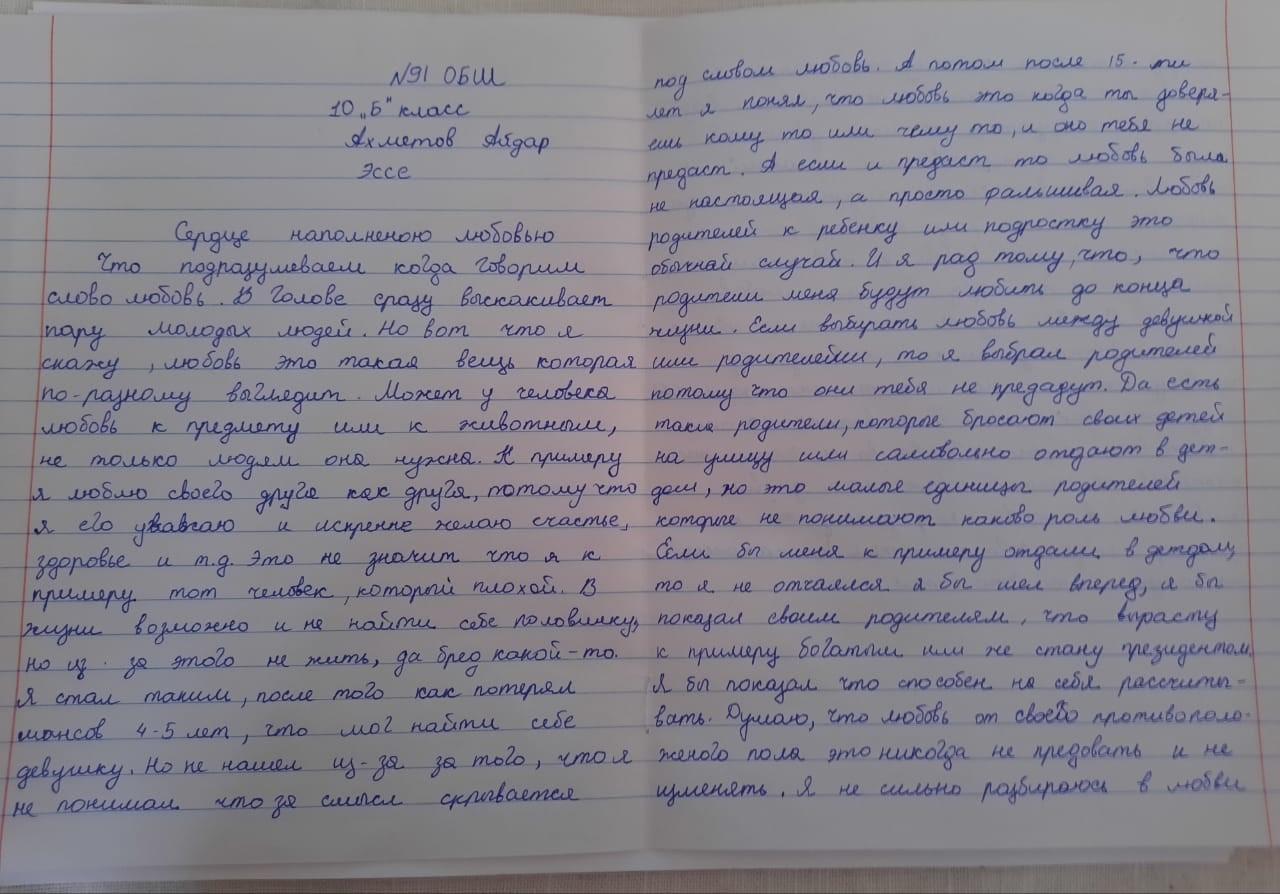 №91 ОБШ
10 „Б" класс
Ахметов Айдар
Эссе
Сердце наполненою любовью
Что подразумеваем когда говорим
слово любовь. В голове сразу выскакивает
пару молодых людей. Но вот что я
скажу, любовь это такая вещь которая
по-разному выглядит. Может у человека
любовь к предмету или к животным,
не только людям она нужна. К примеру
я люблю своего друга как друга, потому что
я его уважаю и искренне желаю счастье,
здоровье и т.д. Это не значит что я к
примеру тот человек, который плохой. В
жизни возможно и не найти себе половинку,
но из-за этого не жить, да бред какой-то.
Я стал таким, после того как потерял
шансов 4-5 лет, что мог найти себе
девушку. Но не нашел из-за за того, что я
не понимал что за смысл скрывается
под словом любовь. А потом после 15-ти
лет я понял, что любовь это когда ты доверя-
ешь кому то или чему то, и оно тебя не
предаст. А если и предаст то любовь была
не настоящая, а просто фальшивая. Любовь
родителей к ребенку или подростку это
обычнай случай. И я рад тому, что, что
родители меня будут любить до конца
жизни. Если выбирать любовь между девушкой
или родителейми, то я выбрал родителей
потому что они тебя не предадут. Да есть
такие родители, которые бросают своих детей
на улицу или самвольно отдают в дет-
дом, но это малые единицы родителей
которые не понимают каково роль любви.
Если бы меня к примеру отдали в детдом,
то я не отчаялся я бы шел вперед, я бы
показал своим родителям, что вырасту
к примеру богатым или же стану президентом.
Я бы показал что способен на себя рассчиты-
вать. Думаю, что любовь от своего противополо-
женого пола это никогда не предовать и не
изменять. Я не сильно разбираюсь в любви